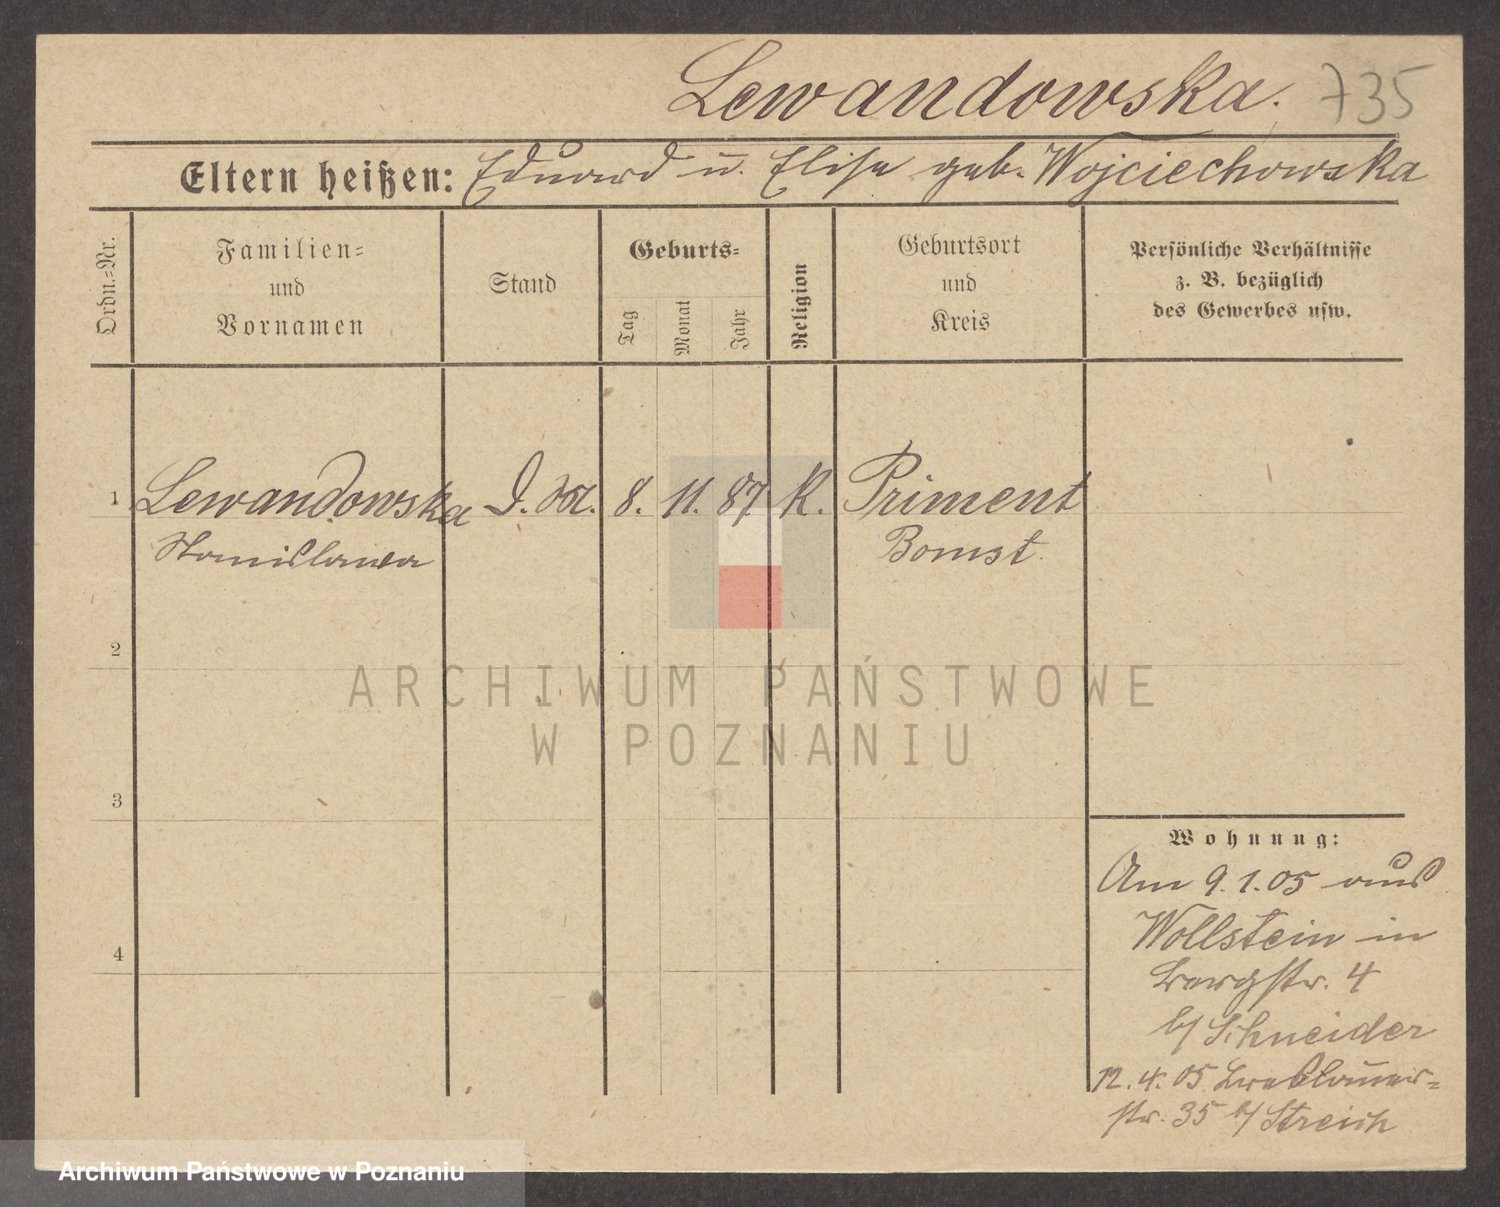 Lewandowska. 735
Eltern heißen: Eduard u. Elise geb. Wojciechowska
Ordn.=Nr.
Familien=
und
Vornamen
Stand
Geburts=
Tag
Monat
Jahr
Religion
Geburtsort
und
Kreis
Persönliche Verhältnisse
z. B. bezüglich
des Gewerbes usw.
1 Lewandowska 8. 11. 87 K. Priment
Stanislawa Bomst.
2
ARCHIWUM PAŃSTWOWE
W POZNANIU
3
Wohnung:
Am 9.1.05 aus
Wollstein in
Bergstr. 4
b/ Schneider
4
12.4.05 Breslauer=
str. 35 b/ Streich
Archiwum Państwowe w Poznaniu